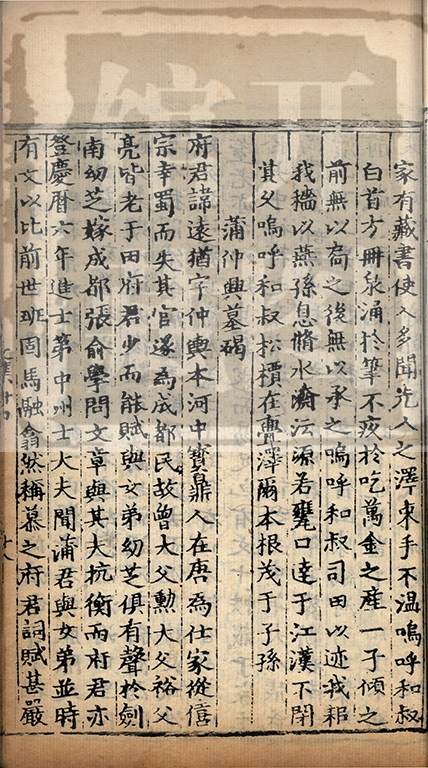 家有藏書使人多聞先人之澤束手不温嗚呼和叔
白首方冊泉涌於筆不疚於吃萬金之産一子傾之
前無以裔之後無以承之嗚呼和叔司田以迹我耜
我穡以燕孫息脩水瀰沄源若甕口達于江漢不閉
其父嗚呼和叔松檟在豐澤爾本根茂于子孫
蒲仲輿墓碣
府君諱遠猶字仲輿本河中寳鼎人在唐為仕家從僖
宗幸蜀而失其官遂為成都民故曾大父勲大父裕父
亮皆老于田府君少而能賦與女弟幼芝俱有聲於劍
南幼芝嫁成都張俞學問文章與其夫抗衡而府君亦
登慶曆六年進士第中州士大夫聞蒲君與女弟並時
有文以比前世班固馬融翕然稱慕之府君詞賦甚嚴